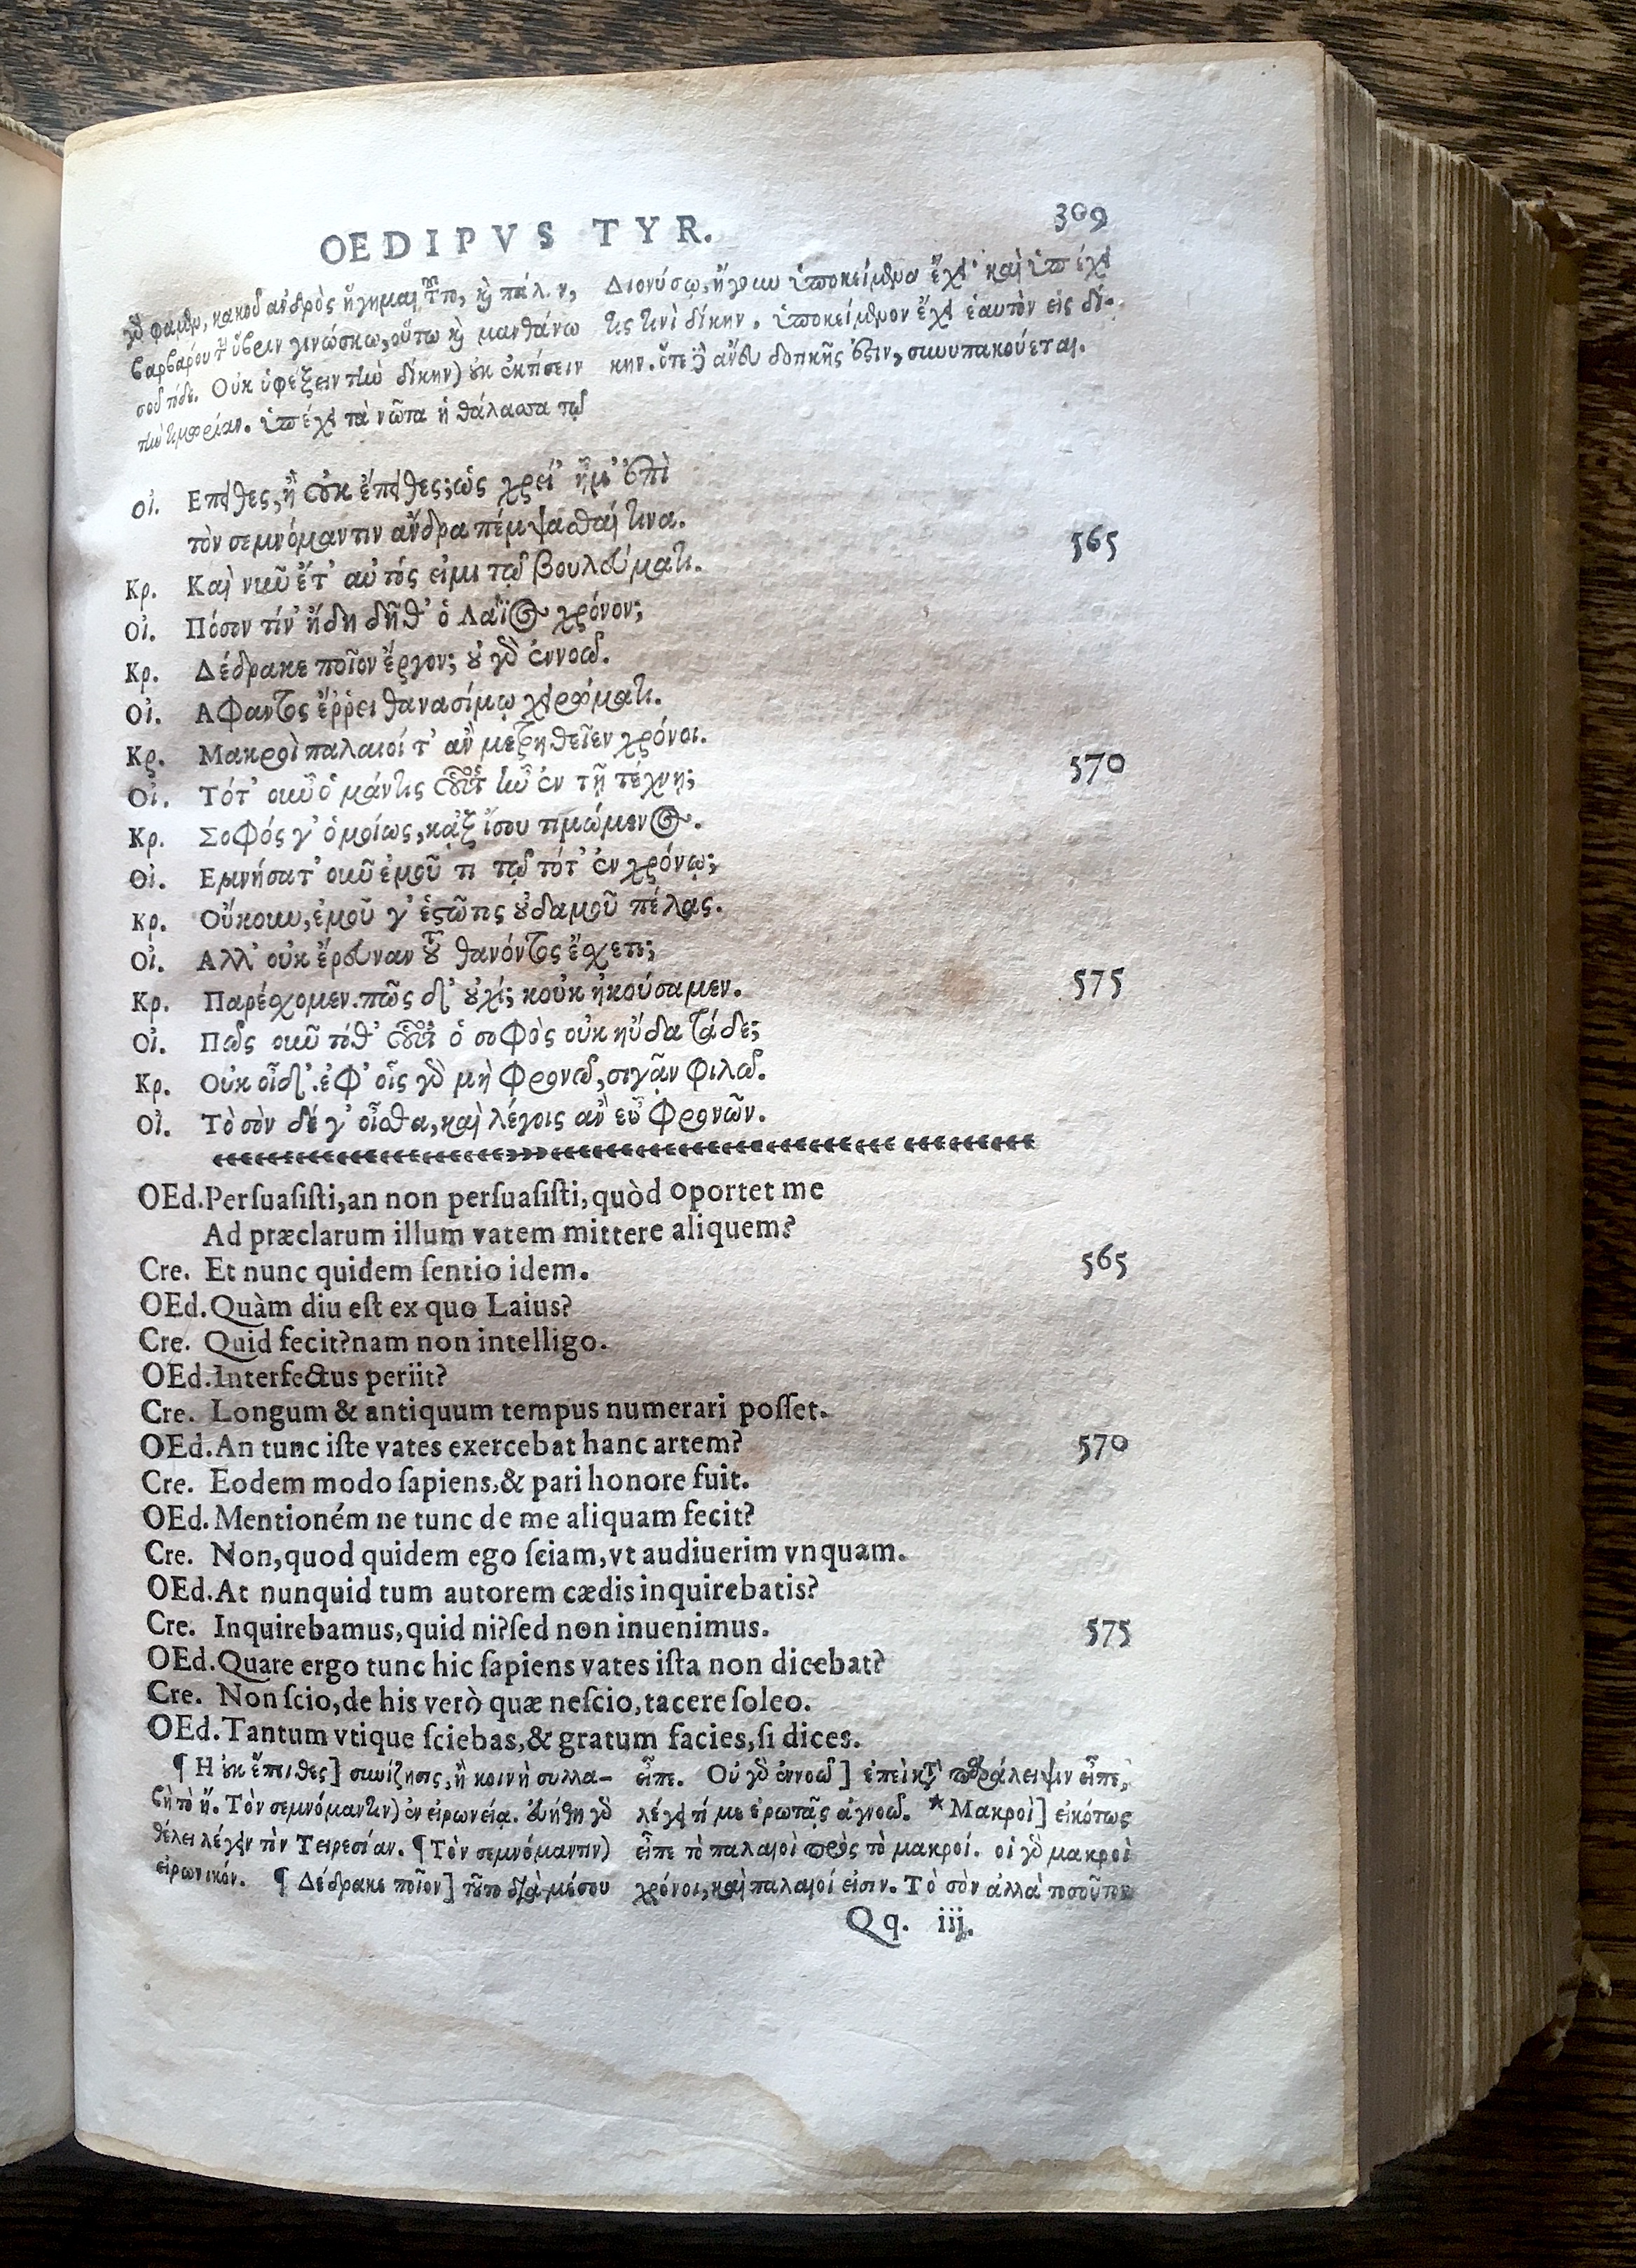 OEDIPVS TYR.
309
γδ φαμὲν, κακοῦ ἀνδρὸς ἥγημαι
βαρβάρου ὕβριν γινώσκω, οὕτω κὶ μανθάνω
Οὐκ ὑφέξειν τὴν δίκην) ἐκτίσειν
τὴν τιμωρίαν. ὑπέχει τὰ νῶτα ἡ θάλασσα τῷ
Διονύσῳ, ἤγουν ὑποκείμενα ἔχει· καὶ ὑπέχει
τις τινὶ δίκην. ὑποκείμενον ἔχει ἑαυτὸν εἰς δί-
κην. ἄνευ δοτικῆς ἐστιν, συνυπακούεται.
Οἰ. Επειθες, ἢ οὐκ ἔπειθες; ὡς χρεί' ἤμ' ἐπὶ
τὸν σεμνόμαντιν ἄνδρα πέμψασθαί τινα.
565
Κρ. Καὶ νῦν ἔτ' αὐτός εἰμι τῷ βουλεύματι.
Οἰ. Πόσον τίν' ἤδη δῆθ' ὁ Λάϊος χρόνον;
Κρ. Δέδρακε ποῖον ἔργον; οὐ γὰρ ἐννοῶ.
Οἰ. Αφαντος ἔῤῥει θανασίμῳ χειρώματι.
Κρ. Μακροὶ παλαιοί τ' ἂν μετρηθεῖεν χρόνοι.
570
Οἰ. Τότ' οὖν ὁ μάντις οὗτος ἦν ἐν τῇ τέχνῃ;
Κρ. Σοφός γ' ὁμοίως, κᾀξ ἴσου τιμώμενος.
Οἰ. Εμνήσατ' οὖν ἐμοῦ τι τῷ τότ' ἐν χρόνῳ;
Κρ. Οὔκουν, ἐμοῦ γ' ἑστῶτος οὐδαμοῦ πέλας.
Οἰ. Αλλ' οὐκ ἔρευναν τοῦ θανόντος ἔσχετε;
Κρ. Παρέσχομεν. πῶς δ' οὐχί; κοὐκ ἠκούσαμεν.
575
Οἰ. Πῶς οὖν τόθ' οὗτος ὁ σοφὸς οὐκ ηὔδα τάδε;
Κρ. Οὐκ οἶδ'. ἐφ' οἷς γὰρ μὴ φρονῶ, σιγᾷν φιλῶ.
Οἰ. Τὸ σὸν δέ γ' οἶσθα, καὶ λέγοις ἂν εὖ φρονῶν.
OEd. Persuasisti, an non persuasisti, quòd oportet me
Ad præclarum illum vatem mittere aliquem?
Cre. Et nunc quidem sentio idem.
565
OEd. Quàm diu est ex quo Laius?
Cre. Quid fecit? nam non intelligo.
OEd. Interfectus periit?
Cre. Longum & antiquum tempus numerari posset.
OEd. An tunc iste vates exercebat hanc artem?
570
Cre. Eodem modo sapiens, & pari honore fuit.
OEd. Mentioném ne tunc de me aliquam fecit?
Cre. Non, quod quidem ego sciam, vt audiuerim vnquam.
OEd. At nunquid tum autorem cædis inquirebatis?
Cre. Inquirebamus, quid ni? sed non inuenimus.
575
OEd. Quare ergo tunc hic sapiens vates ista non dicebat?
Cre. Non scio, de his verò quæ nescio, tacere soleo.
OEd. Tantum vtique sciebas, & gratum facies, si dices.
¶ Η οὐκ ἔπειθες] συνίζησις, ἢ κοινὴ συλλα-
βὴ τὸ ἤ. Τὸν σεμνόμαντιν) ἐν εἰρωνείᾳ. γὰρ
θέλει λέγειν τὸν Τειρεσίαν. ¶ Τὸν σεμνόμαντιν)
εἰρωνικόν. ¶ Δέδρακε ποῖον] τοῦτο διὰ μέσου
εἶπε. Οὐ γὰρ ἐννοῶ] ἐπεὶ κατὰ παράλειψιν εἶπε,
λέγει τί με ἐρωτᾷς ἀγνοῶ. * Μακροὶ] εἰκότως
εἶπε τὸ παλαιοὶ πρὸς τὸ μακροί. οἱ γὰρ μακροὶ
χρόνοι, καὶ παλαιοί εἰσιν. Τὸ σὸν ἀλλὰ τοσοῦτον
Qq. iij.